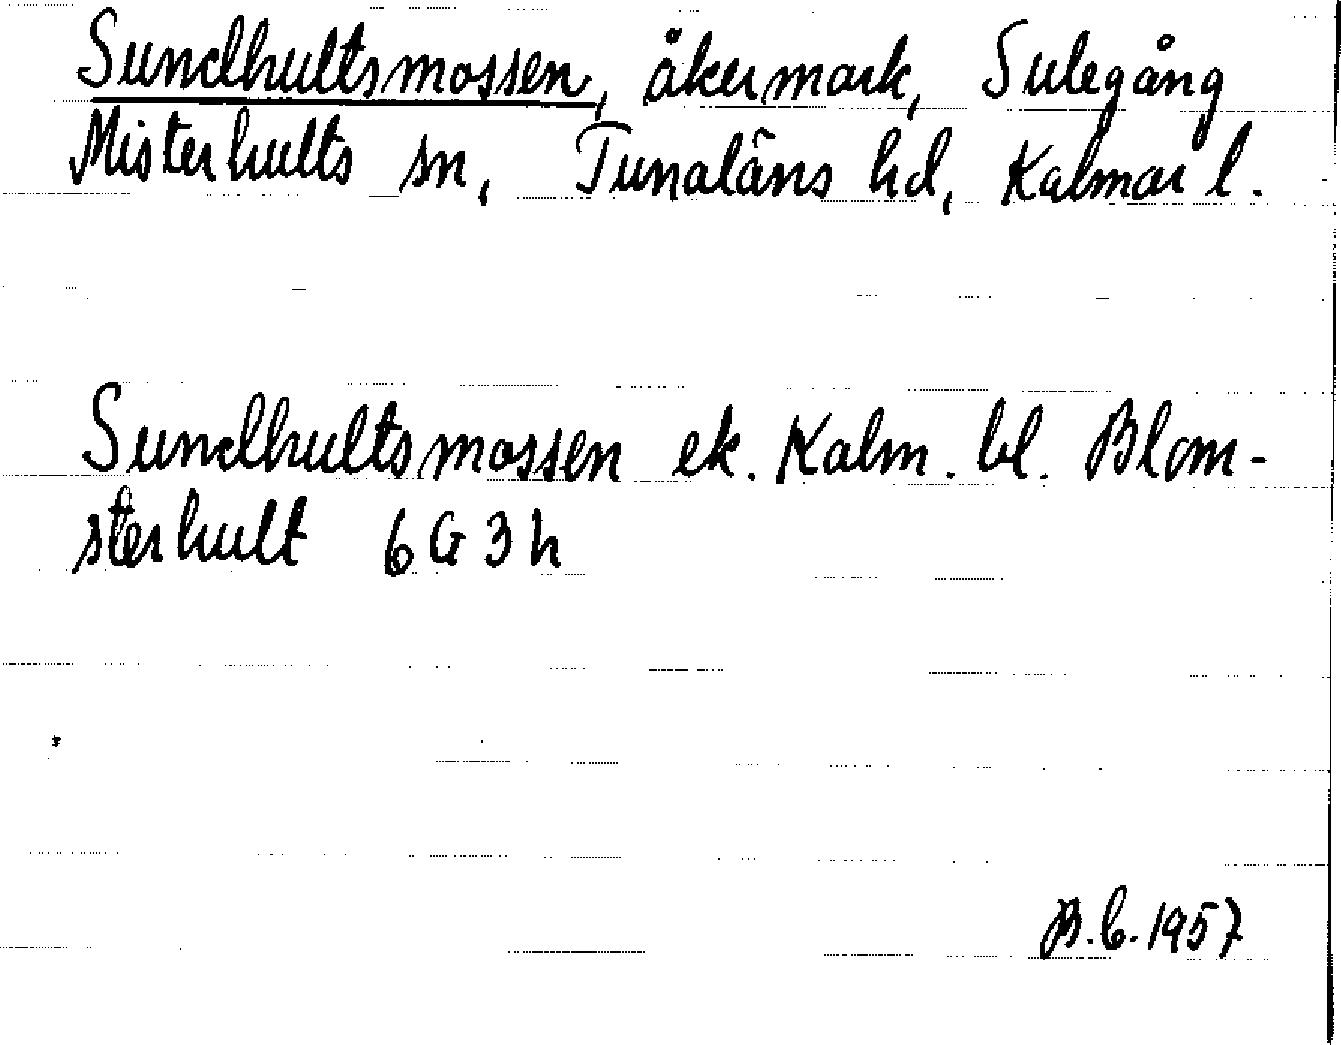 Sundhultsmossen, åkermark, Sulegång
Misterhults sn, Tunaläns hd, Kalmar l.
Sundhultsmossen ek. Kalm. bl. Blom-
sterhult 6G3h
B.C. 1957